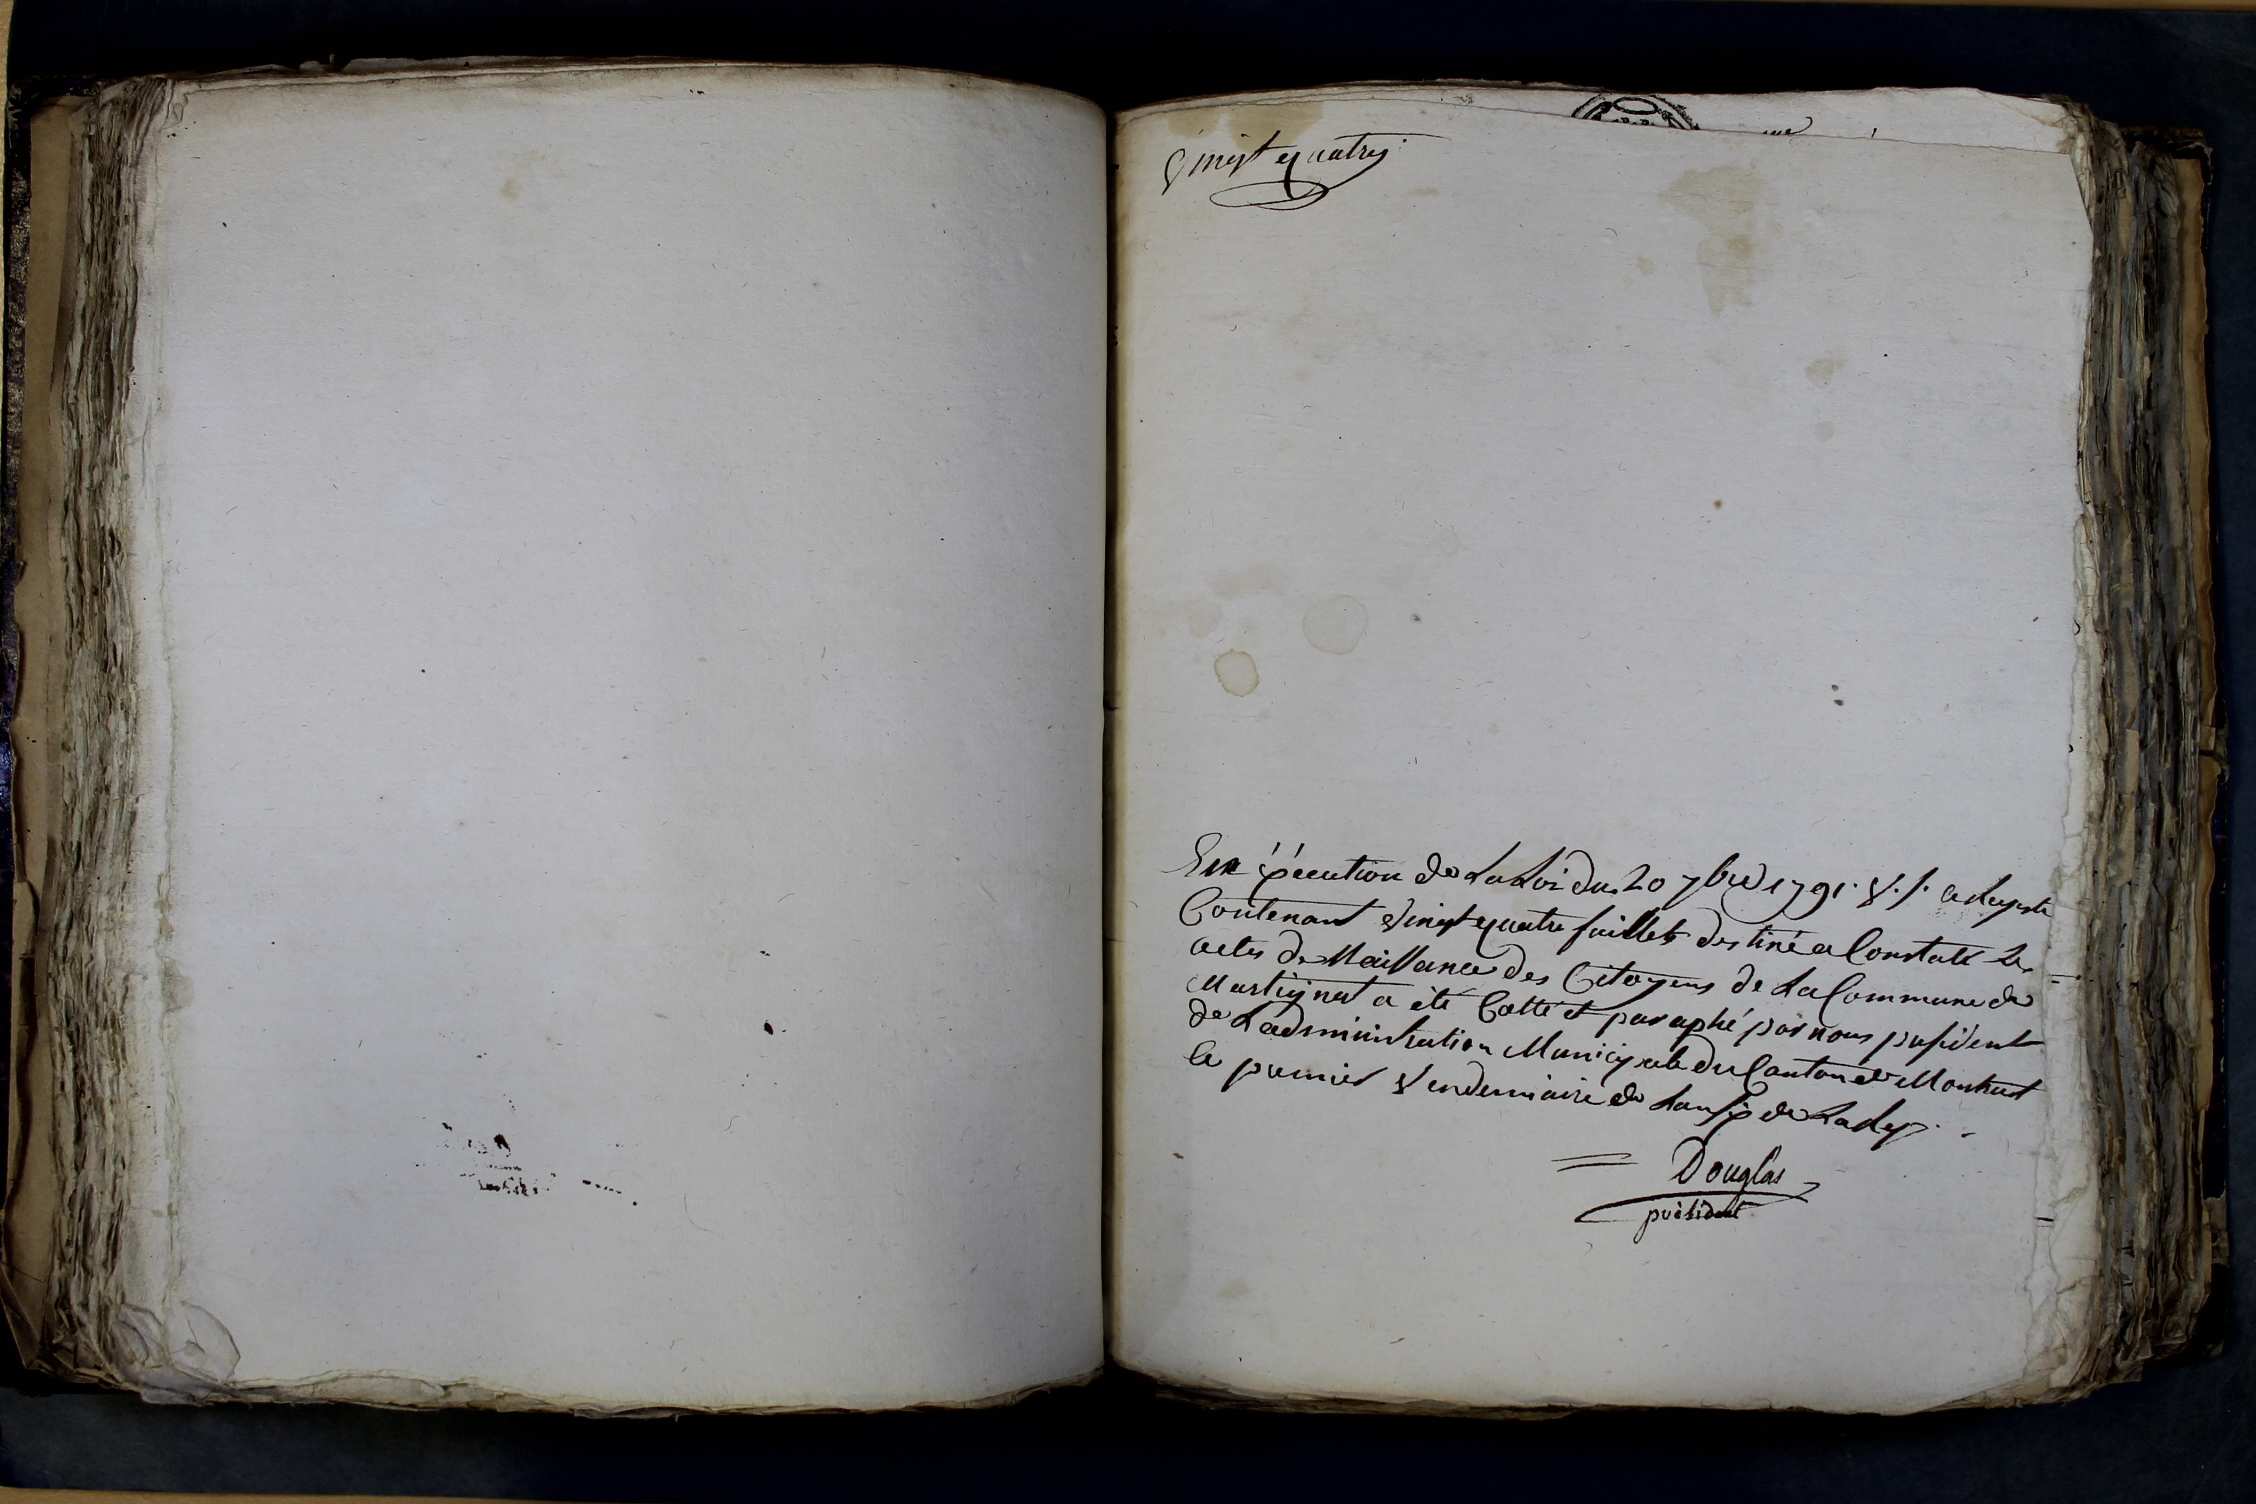 Vingt quatre
En exécution de La Loi du 20 7bre 1791. V. S. ce Registre
Contenant Vingt quatre feuillets destiné a Constater Les
actes de Naissance des Citoyens de La Commune de
Martignat a été Cotté et paraphé par nous président
de L'administration Municipale du Canton de Montreal
le premier Vendemiaire de L'an six de La Rep.
Douglas
président